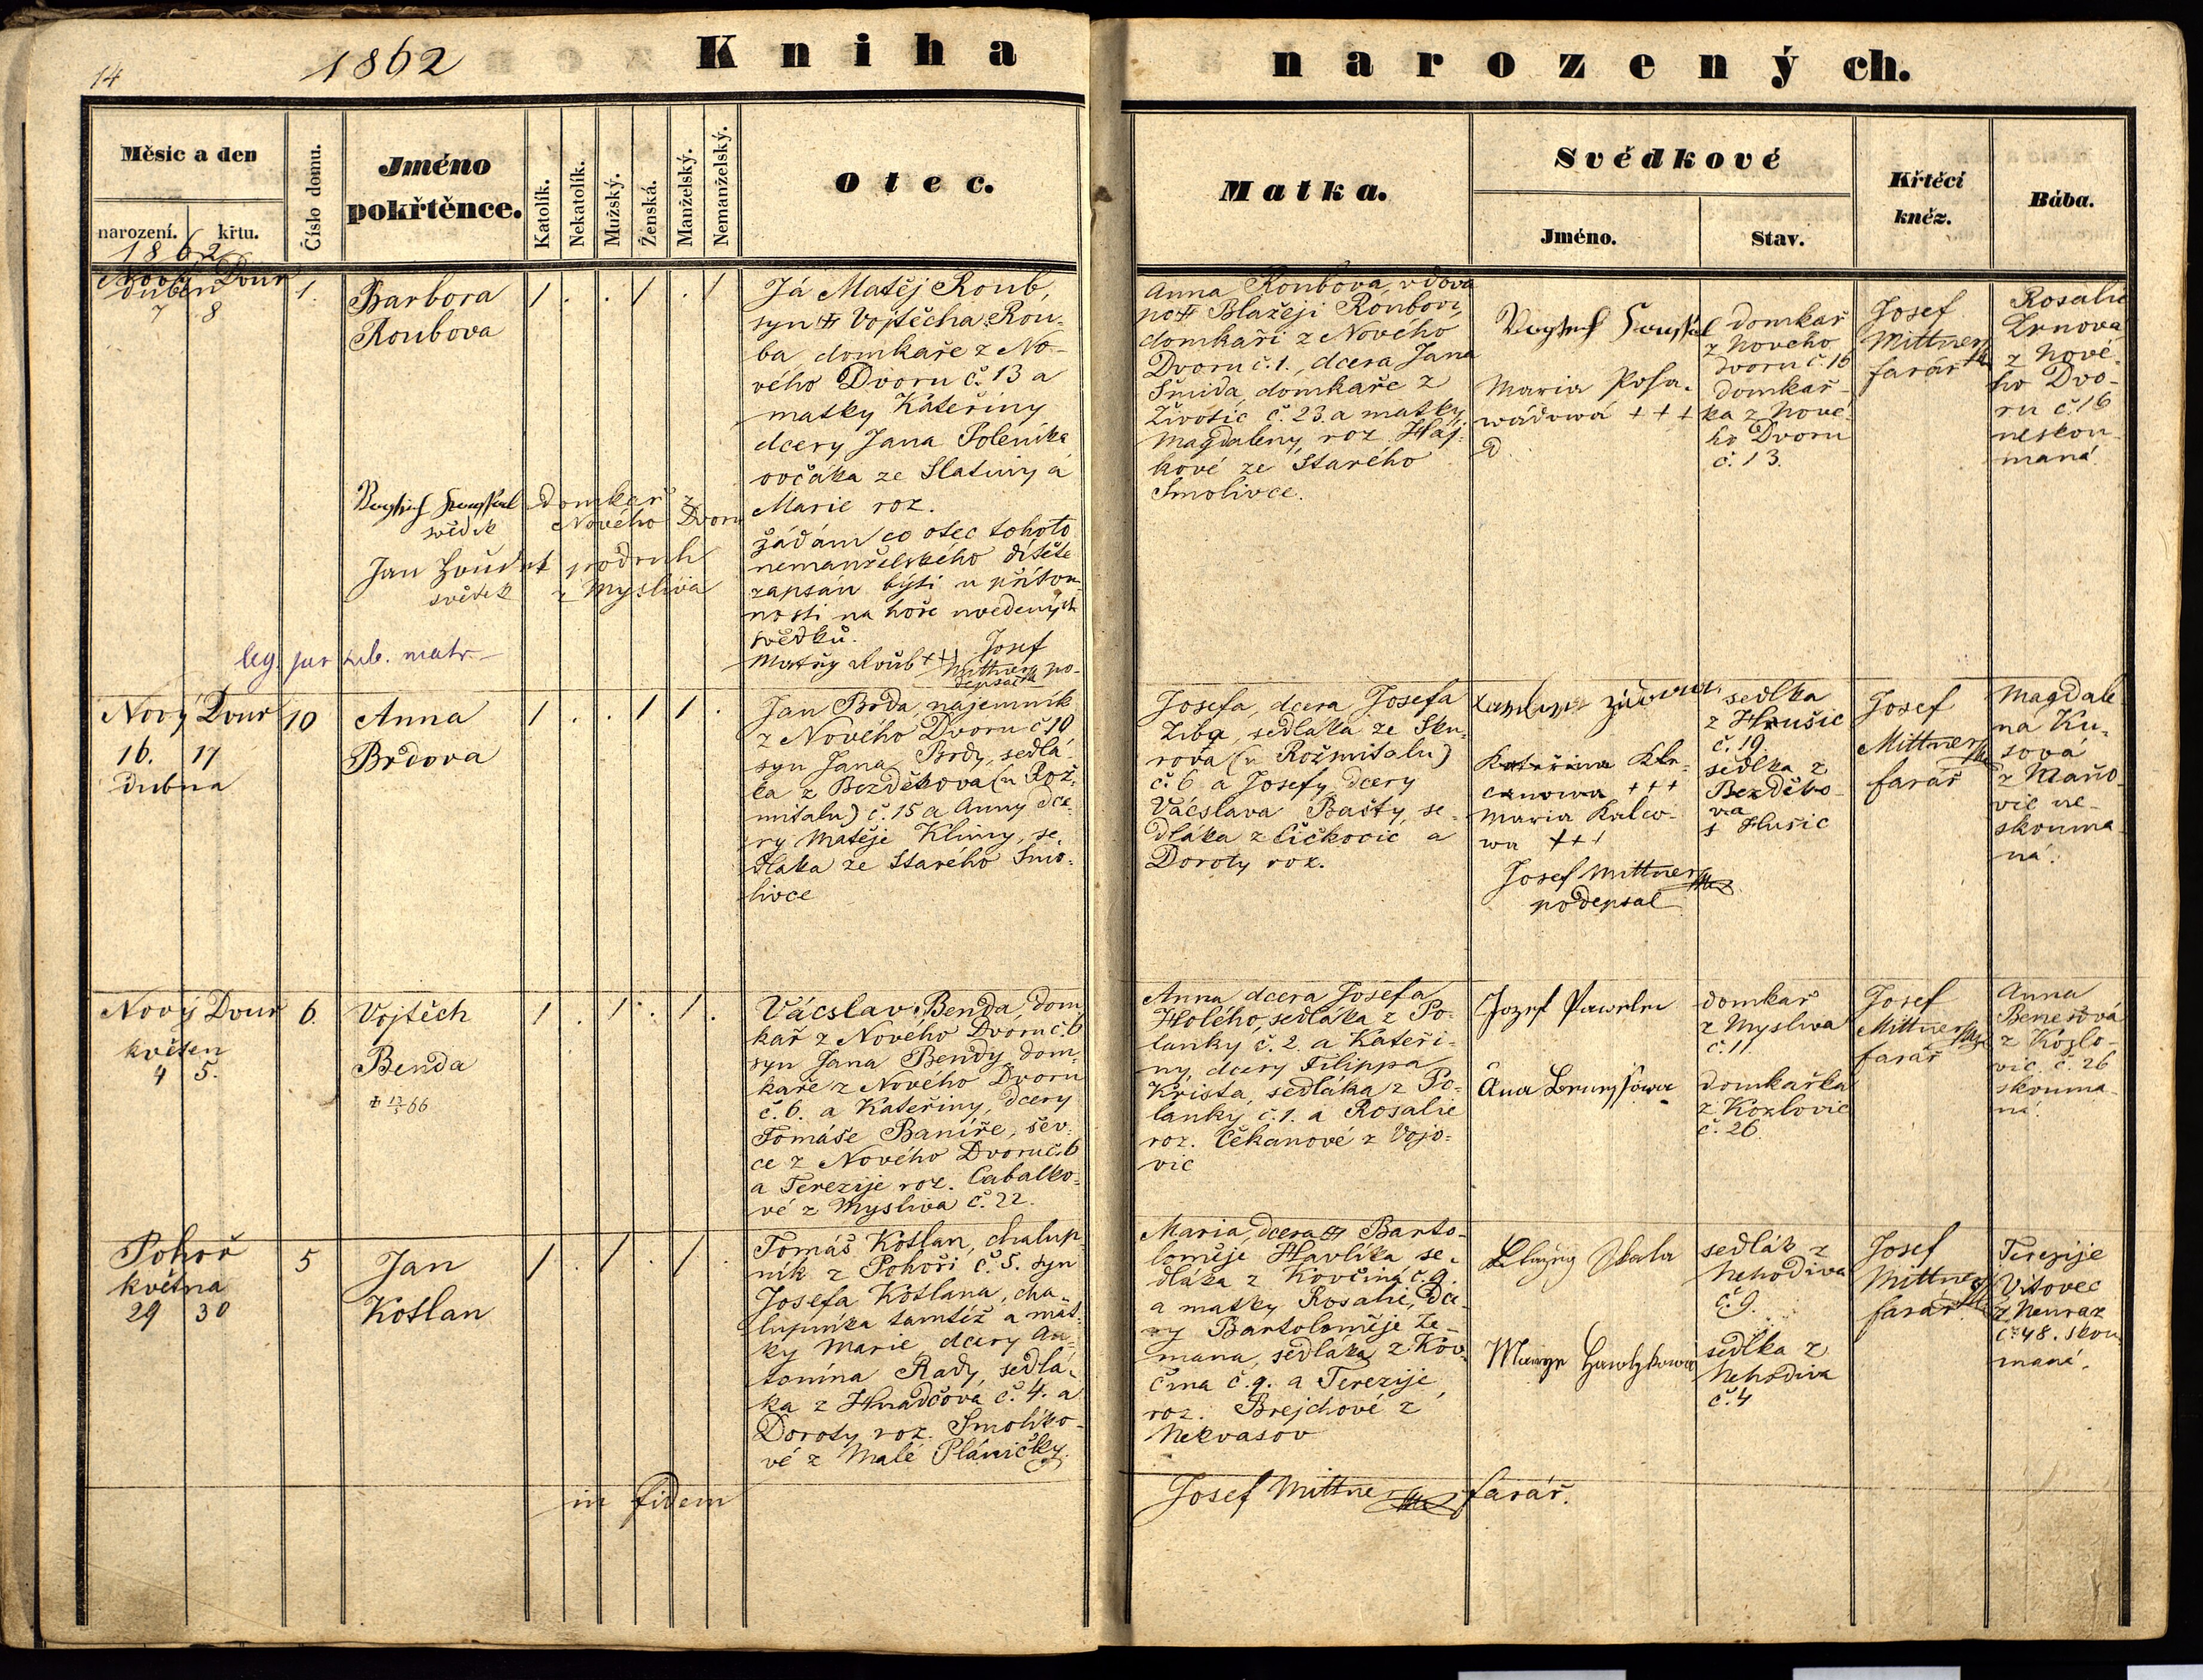 14
1862
Kniha
narozených.
Měsíc a den
narození.
křtu.
Číslo domu.
Jméno
pokřtěnce.
Katolík.
Nekatolík.
Mužský.
Ženská.
Manželský.
Nemanželský.
Otec.
Matka.
Svědkové
Jméno.
Stav.
Křtěcí
kněz.
Bába.
1862
Nový Dvur
duben
7 8
1.
Barbora
Roubova
1 . . 1 . 1
Já Matěj Roub,
syn # Vojtěcha Rou-
ba domkaře z No-
vého Dvoru č. 13 a
matky Kateřiny
dcery Jana Poleníka
ovčáka ze Slatiny a
Marie roz.
žádám co otec tohoto
nemanželského dítěte
zapsán býti u přítom-
nosti na hoře uvedených
svědků.
Matěy Roub +++ Josef
Mittner po-
depsal
domkař z
svědek Nového Dvoru
Jan podruh
svědek z Mysliva
leg. per sub. matr.
Anna Roubova, vdova
po # Blažeji Roubovi,
domkaři z Nového
Dvoru č. 1., dcera Jana
Šmida, domkaře z
Životic č. 23. a matky
Magdaleny, roz. Háj-
kové ze Starého
Smolivce.
Maria Posa-
wádowá + + +
domkař
z Nového
Dvoru č. 16
domkař-
ka z Nové-
ho Dvoru
č. 13.
Josef
Mittner
farář
Rosalie
z Nové-
ho Dvo-
ru č. 16
neskou-
maná.
Nový Dvur
16. 17
dubna
10
Anna
Brdova
1 . . 1 1 .
Jan Brda, najemník
z Nového Dvoru č 10
syn Jana Brdy, sedlá-
ka z Bezděkova (u Rož-
mitalu) č. 15 a Anny dce-
ry Matěje Klimy, se-
dlaka ze Starého Smo-
livce
Josefa, dcera Josefa
Ziba, sedláka ze Sku-
rova (u Rožmitalu)
č. 6 a Josefy, dcery
Václava Bašty, se-
dláka z Ličkovic a
Doroty roz.
Kateřina
+ + +
Maria Kalco-
wa + + +
Josef Mittner
podepsal
sedlka
z Hrušic
č. 19.
sedlka z
Bezděko-
va
s Hušic
Josef
Mittner
farář
Magdale-
na Ku-
sová
z Maňo-
vic ne-
skouma-
ná.
Nový Dvur
květen
4 5.
6.
Vojtěch
Benda
‡ 12/5 66
1 . 1 . 1 .
Vácslav Benda, dom-
kař z Nového Dvoru č. 6
syn Jana Bendy, dom-
kaře z Nového Dvoru
č. 6. a Kateřiny, dcery
Tomáše Baníře, šev-
ce z Nového Dvoru č. 6
a Terezije roz. Cabalko-
vé z Mysliva č. 22.
Anna dcera Josefa
Holého, sedláka z Po-
lanky č. 2. a Kateři-
ny, dcery Filippa
Křista, sedláka z Po-
lanky č. 1. a Rosalie
roz. Čekanové z Vojo-
vic
Jozef Pawelec
domkař
z Mysliva
č. 11.
domkařka
z Kozlovic
č. 26.
Josef
Mittner
farář
Anna
Benešová
z Kozlo-
vic č. 26
skouma-
ná.
Pohoř
května
29 30
5
Jan
Kotlan
1 . 1 . 1 .
Tomáš Kotlan, chalup-
ník z Pohoří č. 5. syn
Josefa Kotlana, cha-
lupníka tamtéž a mat-
ky Marie, dcery An-
tonína Rady, sedlá-
ka z Hnadčova č. 4. a
Doroty roz. Smolíko-
vé z Malé Pláničky.
Maria, dcera # Barto-
loměje Havlíka se-
dláka z Kovčína č. 9.
a matky Rosalie, dce-
ry Bartoloměje Ze-
mana, sedláka z Kov-
čína č. 9. a Terezije,
roz. Brejchové z
Nekvasov
Skala
sedlák z
Nehodiva
č. 9.
sedlka z
Nehodiva
č. 4
Josef
Mittner
farář
Terezije
Vitovec
z Neuraz
č. 48. skou-
maná.
in fidem
Josef Mittner farář.